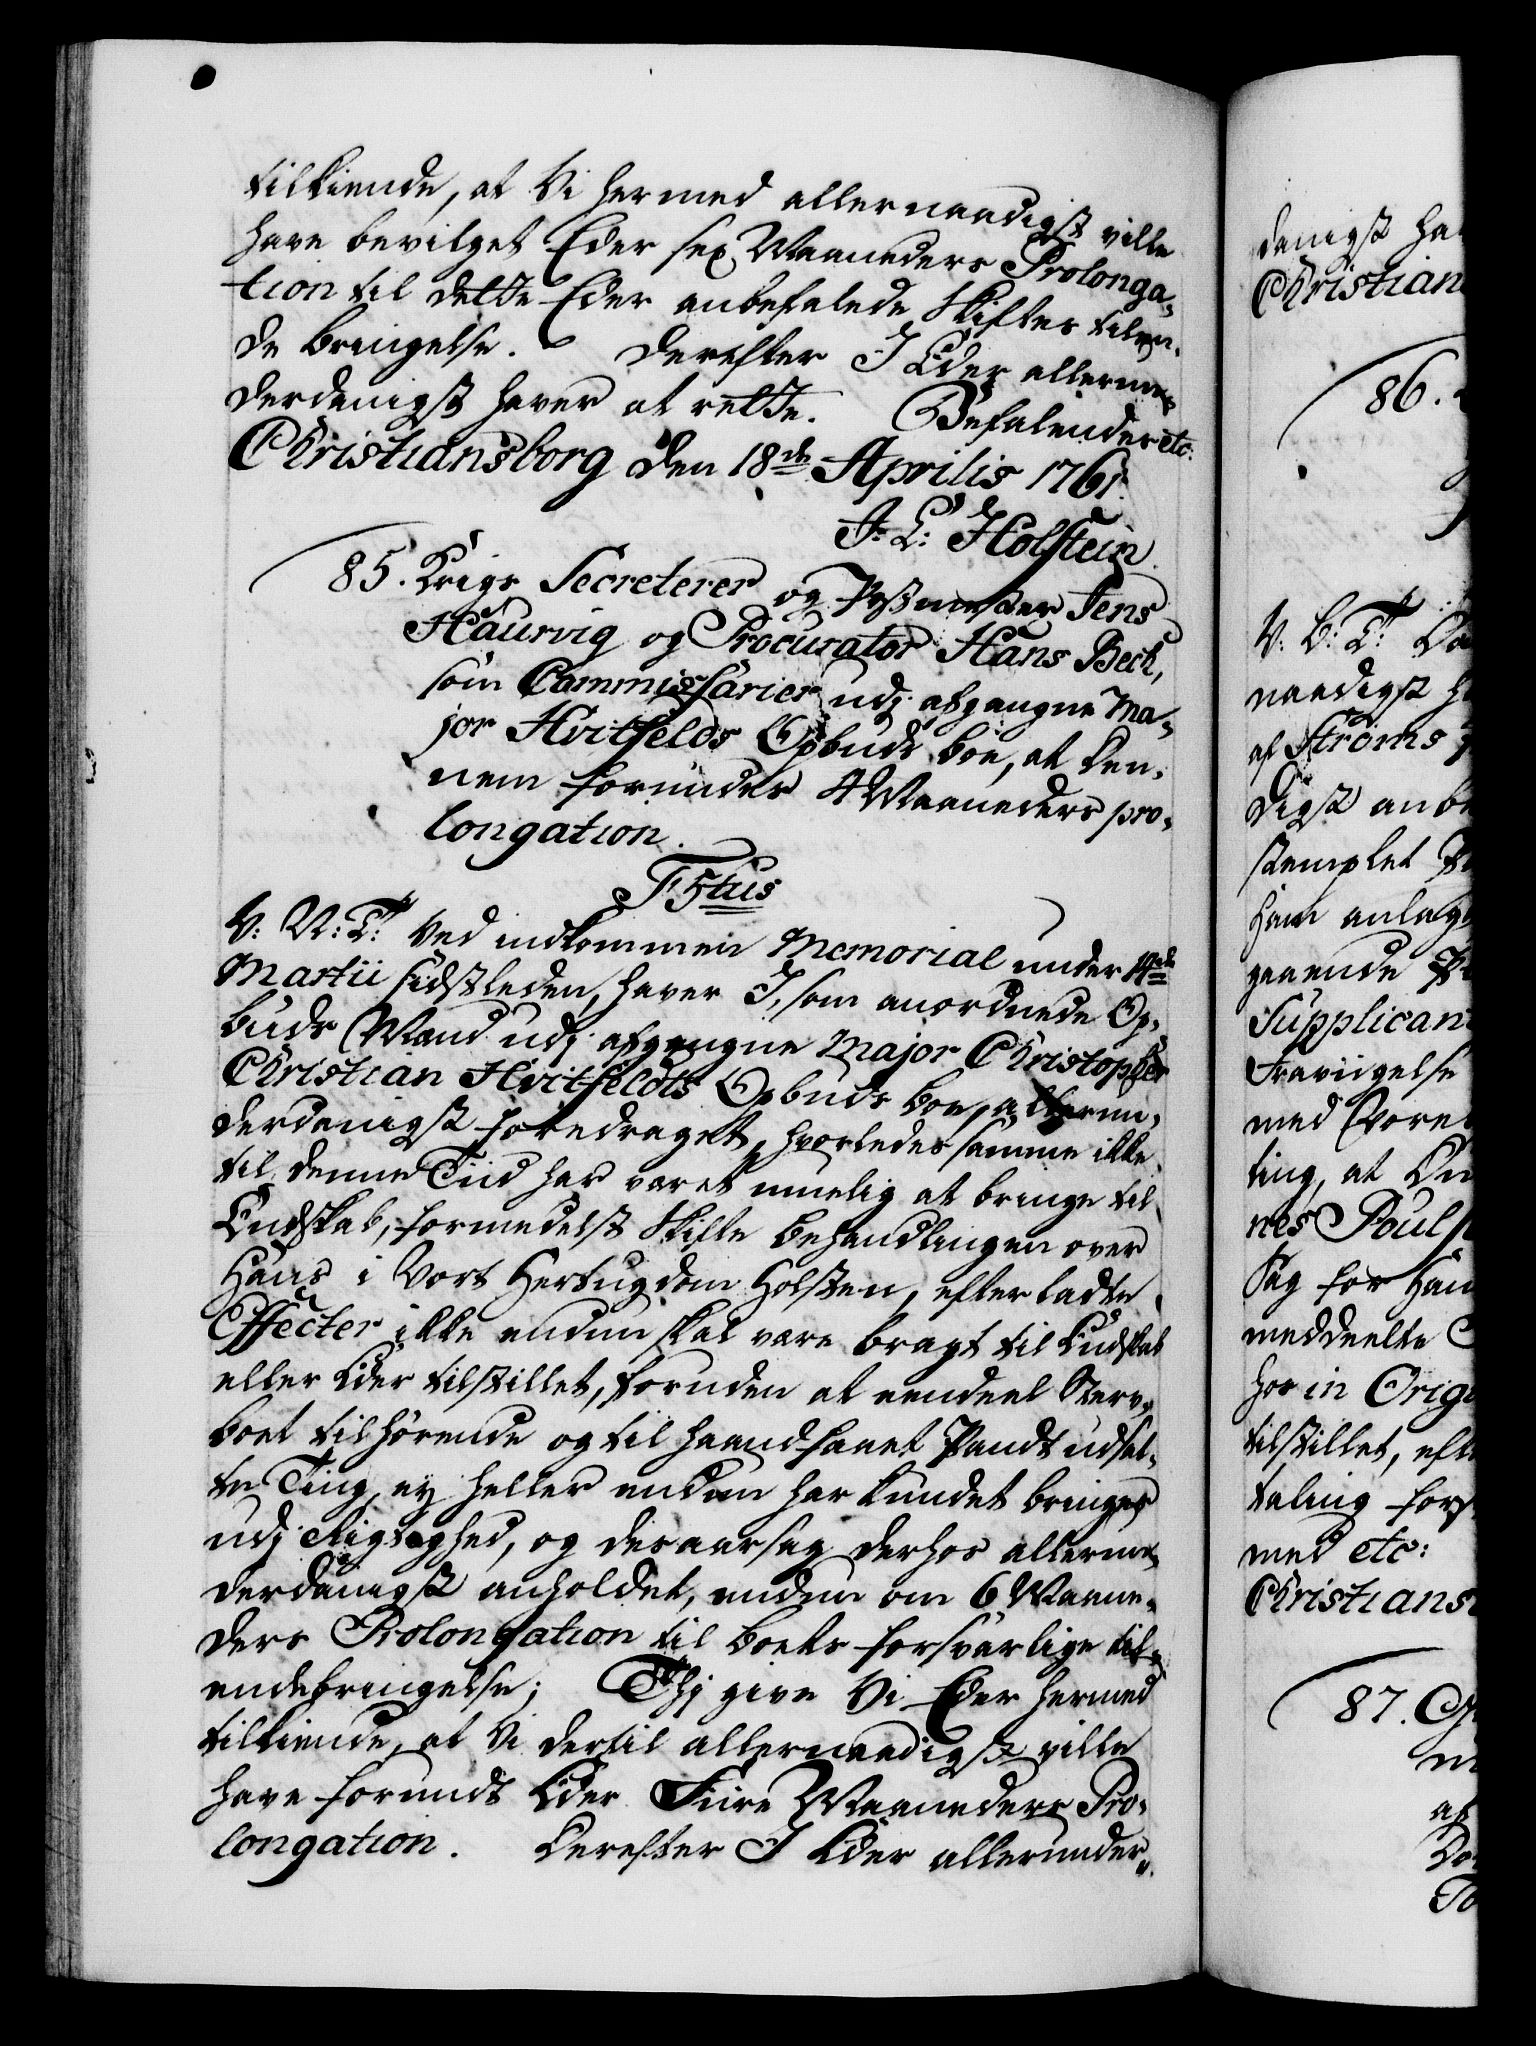 tilkiende, at Vi hermed allernaadigst ville
have bevilget Eder sex Maaneders Prolonga-
tion til dette Eder anbefalede Skiftes tilen-
de bringelse. Derefter I Eder allerun-
derdanigst haver at rette. Befalendes etc:
Christiansborg den 18de Aprilis 1761.
J. L: Holstein.
85. Krigs Secreterer og Postmester Jens
Haurvig og Procurator Hans Beck,
som Commissarier udj afgangne Ma-
jor Hvitfelds Opbuds boe, at den-
nem forundes 4 Maaneders pro-
longation.
F5tus
V: N: T: Ved indkommen Memorial under 14de
Martii sidstleden, haver I, som anordnede Op-
buds Mænd udj afgangne Major Christopher
Christian Hvitfeldts Opbuds boe, allerun-
derdanigst foredraget, hvorledes samme ikke
til denne Tiid har været muelig at bringe til
Endskab, formedelst Skifte behandlingen over
Hans i Vort Hertugdom Holsten, efterladte
Effecter ikke endnu skal være bragt til Endskab
eller Eder tilstillet, foruden at eendeel Sterv-
boet tilhørende og til haandfaaet Pandt udsat-
te Ting, ey heller endnu har kundet bringes
udj Rigtighed, og desaarsag derhos allerun-
derdanigst anholdet, endnu om 6 Maane-
ders Prolongation til boets forsvarlige til-
endebringelse; Thj give Vi Eder hermed
tilkiende, at Vi dertil allernaadigst ville
have forundt Eder Fiire Maaneders Pro-
longation. Derefter I Eder allerunder-
danigst ha
Christian
86.
V: B: T:
naadigst h
af Strøms
digst anbe
stemplet
ham anlag
gaaende
Supplican
Fravigelse
med Vore
ting, at
nes Pouls
Sag for Ham
meddeelte
hos in Orig
tilstillet, eft
taling fors
med etc:
Christians
87.
af